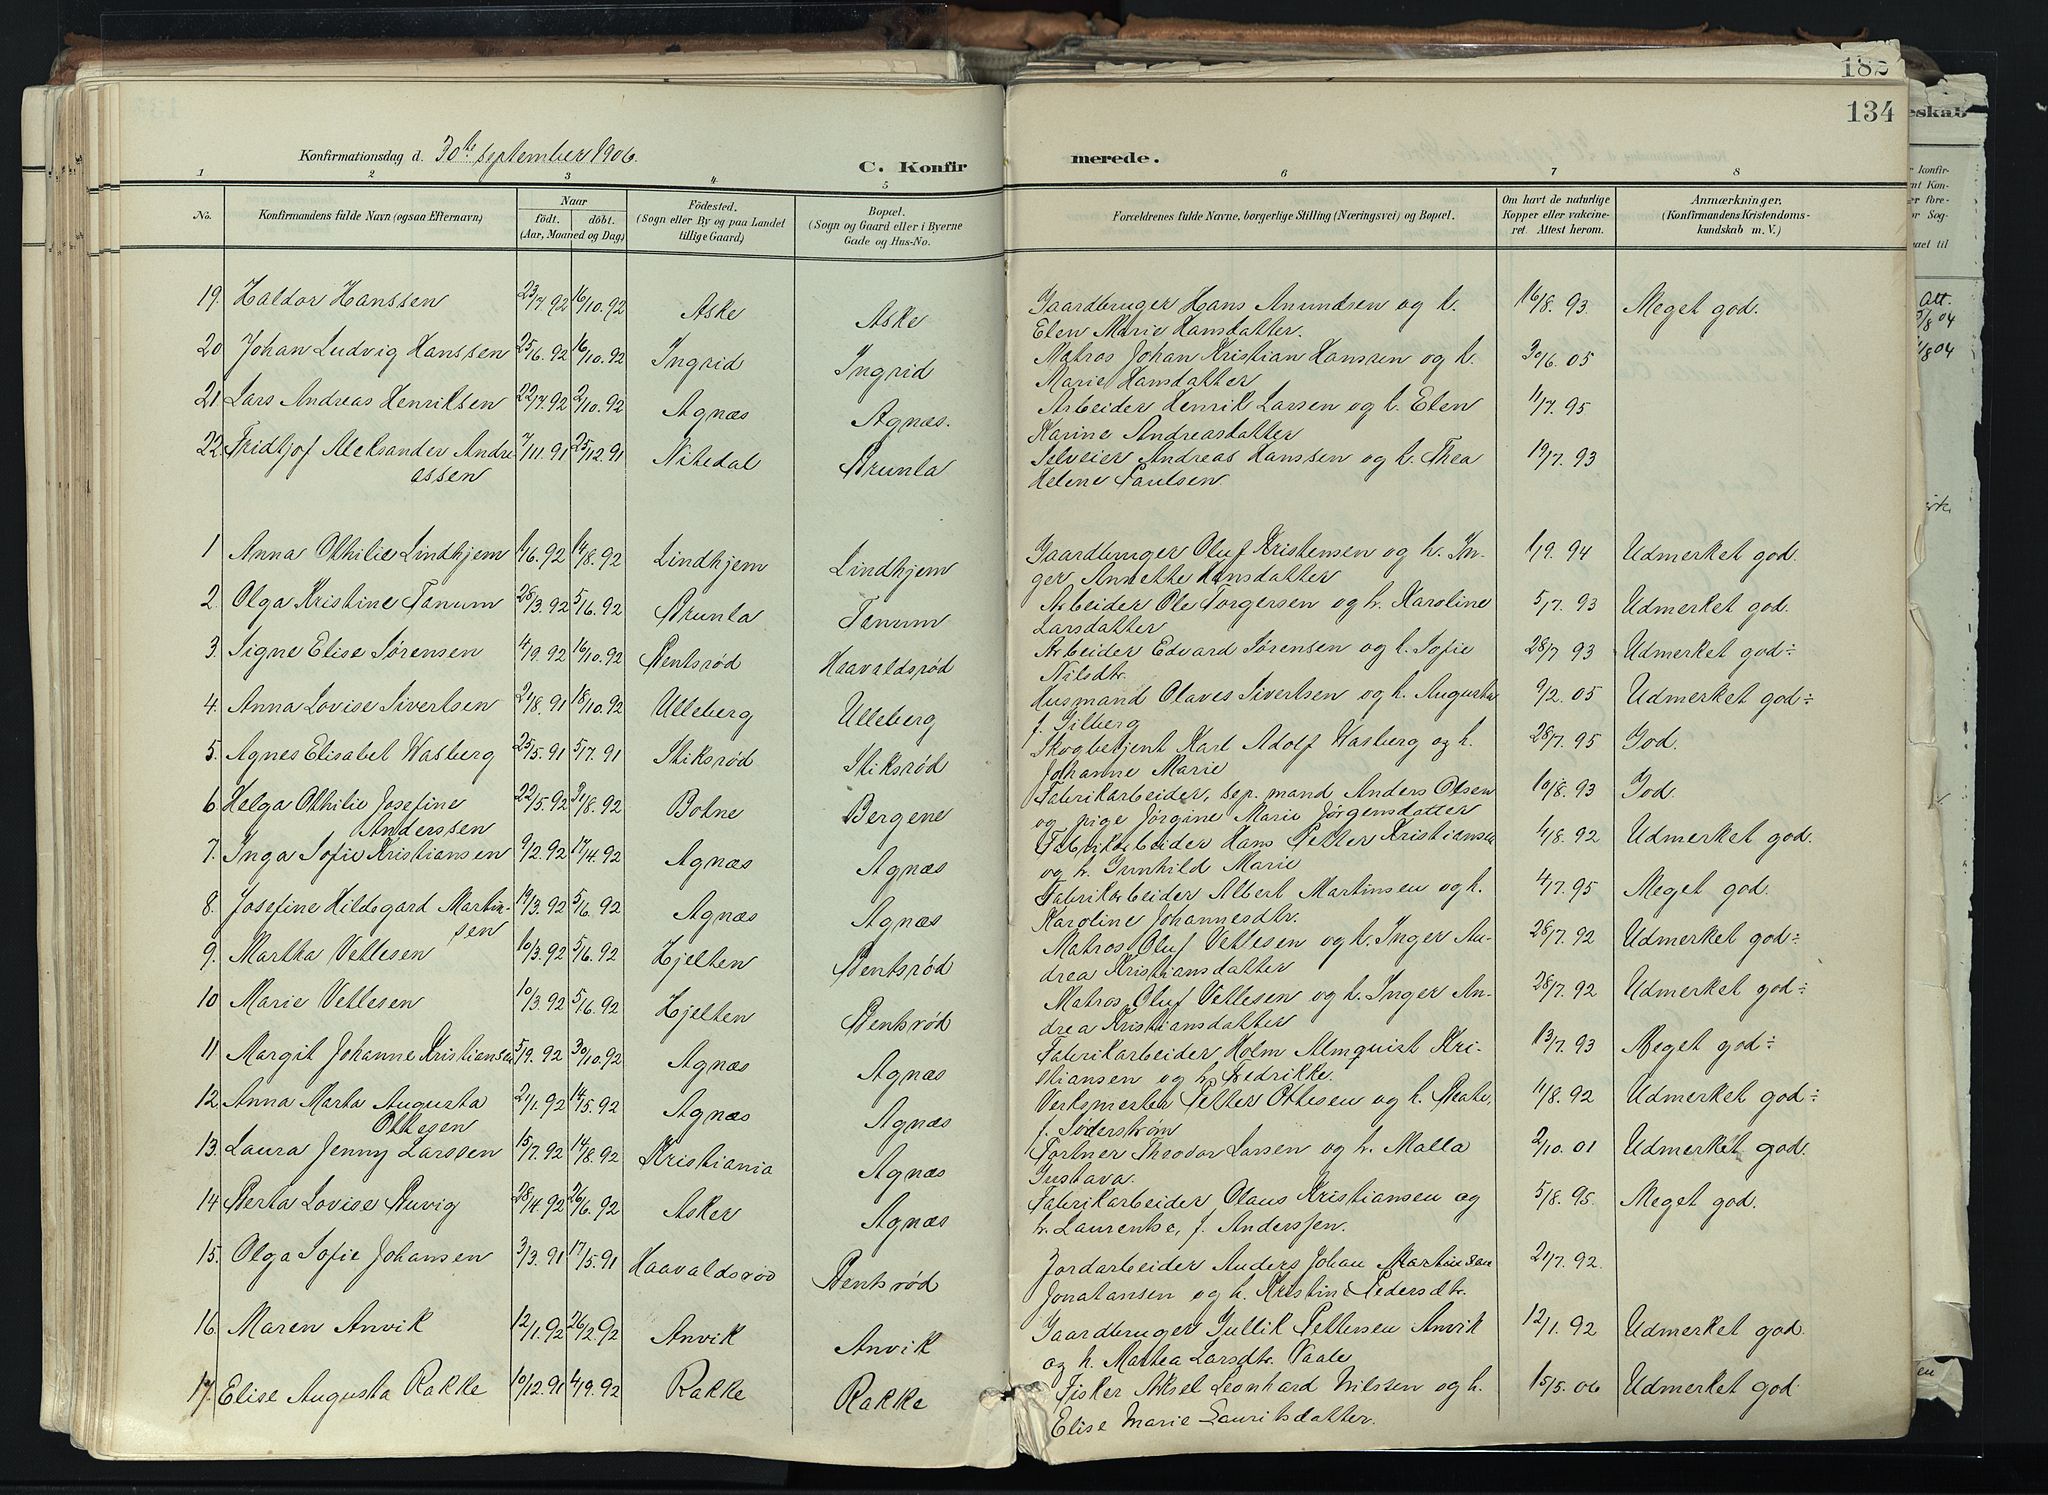 182
134
Konfirmationsdag d. 30th September 1906.
C. Konfirmerede.
1 2 3 4 5 6 7 8
No.
Konfirmandens fulde Navn (ogsaa Efternavn)
Naar
født. døbt.
(Aar, Maaned og Dag)
Fødested.
(Sogn eller By og paa Landet
tillige Gaard)
Bopæl.
(Sogn og Gaard eller i Byerne
Gade og Hus-No.
Forældrenes fulde Navne, borgerlige Stilling (Næringsvei) og Bopæl.
Om havt de naturlige
Kopper eller vakcine-
ret. Attest herom.
Anmærkninger.
(Konfirmandens Kristendoms-
kundskab m. V.)
19. Haldor Hanssen 23/7 92 16/10. 92 Aske Aske Gaardbruger Hans Amundsen og h. 16/8. 93. Meget god.
Elen Marie Hansdatter.
20. Johan Ludvig Hanssen 25/6. 92 16/10. 92 Ingrid Ingrid Matros Johan Kristian Hanssen og h. 30/6. 05
Marie Hansdatter
21. Lars Andreas Henriksen 22/7. 92 2/10. 92 Agnæs Agnæs. Arbeider Henrik Larsen og h. Elen 11/7. 95
Karine Andreasdatter
22. Fridtjof Aleksander Andre- 7/11. 91 25/12. 91 Nitedal Brunla Selveier Andreas Hanssen og h. Thea 19/7. 93
assen Helene Paulsen.
1 Anna Othilie Lindhjem 1/6. 92 14/8. 92 Lindhjem Lindhjem Gaardbruger Oluf Kristensen og h. In- 1/9. 94 Udmerket god.
ger Annette Hansdatter
2. Olga Kristine Tanum 28/3. 92 5/6. 92 Brunla Tanum Arbeider Ole Torgersen og h. Karoline 5/7. 93 Udmerket god.
Larsdatter
3. Signe Elise Sørensen 4/9. 92 16/10. 92 Bentsrød Haavaldsrød Arbeider Edvard Sørensen og h. Sofie 28/7 93 Udmerket god÷
Nilsdtr.
4. Anna Lovise Sivertsen 21/8. 91 18/10. 92 Ulleberg Ulleberg Husmand Olaves Sivertsen og h. Augusta 9/2. 05 Udmerket god÷
f. Gilberg
5. Agnes Elisabet Wasberg 25/5. 91 5/7. 91 Stiksrød Stiksrød Skogbetjent Karl Adolf Wasberg og h. 28/7. 95 God.
Johanne Marie
6 Helga Othilie Josefine 22/5. 92 21/8. 92 Botne Bergene Fabrikarbeider, sep. mand Anders Olsen 10/8. 93 God.
Anderssen og pige Jørgine Marie Jørgensdatter
7. Inga Sofie Kristiansen 9/2. 92 17/4. 92 Agnæs Agnæs Fabrikarbeider Hans Petter Kristiansen 4/8. 92 Udmerket god.
og h. Gunhild Marie
8. Josefine Hildegard Martin- 19/3. 92 5/6. 92 Agnæs Agnæs Fabrikarbeider Albert Martinsen og h. 4/7. 95 Meget god.
sen Karoline Johannesdtr.
9. Martha Vetlesen 10/3. 92 5/6. 92 Hjelten Bentsrød Matros Oluf Vetlesen og h. Inger An- 28/7. 92 Udmerket god÷
drea Kristiansdatter
10 Marie Vetlesen 10/3. 92 5/6. 92 Hjelten Bentsrød Matros Oluf Vetlesen og h. Inger An- 28/7. 92 Udmerket god÷
drea Kristiansdatter
11 Margit Johanne Kristiansen 5/9. 92 30/10. 92 Agnæs Agnæs Fabrikarbeider Holm Almquist Kri- 13/7. 93 Meget god÷
stiansen og h. Fredrikke.
12. Anna Marta Augusta 21/1. 92 14/5. 92 Agnæs Agnæs Verksmester Petter Ottesen og h. Beate, 11/8. 92 Udmerket god÷
Ottesen f. Søderstrøm
13. Laura Jenny Larssen 15/7. 92 14/8. 92 Kristiania Agnæs Fortner Theodor Larsen og h. Malla 2/10. 01 Udmerket god.
Gustava.
14 Berta Lovise Buvig 28/4. 92 26/6. 92 Asker Agnæs Fabrikarbeider Olaus Kristiansen og 5/8. 95. Meget god.
h. Laurentse, f. Anderssen.
15. Olga Sofie Johansen 3/3. 91 17/5. 91 Haavaldsrød Bentsrød Jordarbeider Anders Johan Martinsen 21/7. 92.
Jonatansen og h. Kristine Pedersdtr.
16. Maren Anvik 12/1. 92 26/2. 92 Anvik Anvik Gaardbruger Gullik Pettersen Anvik 12/1. 92 Udmerket god.
og h. Mathea Larsdtr. Vaale
17. Elise Augusta Rakke 10/12. 91 4/9. 92 Rakke Rakke Fisker Aksel Leonhard Nilssen og h. 15/5. 06 Udmerket god.
Elise Marie Lauritsdatter.